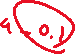 4 - 0.1